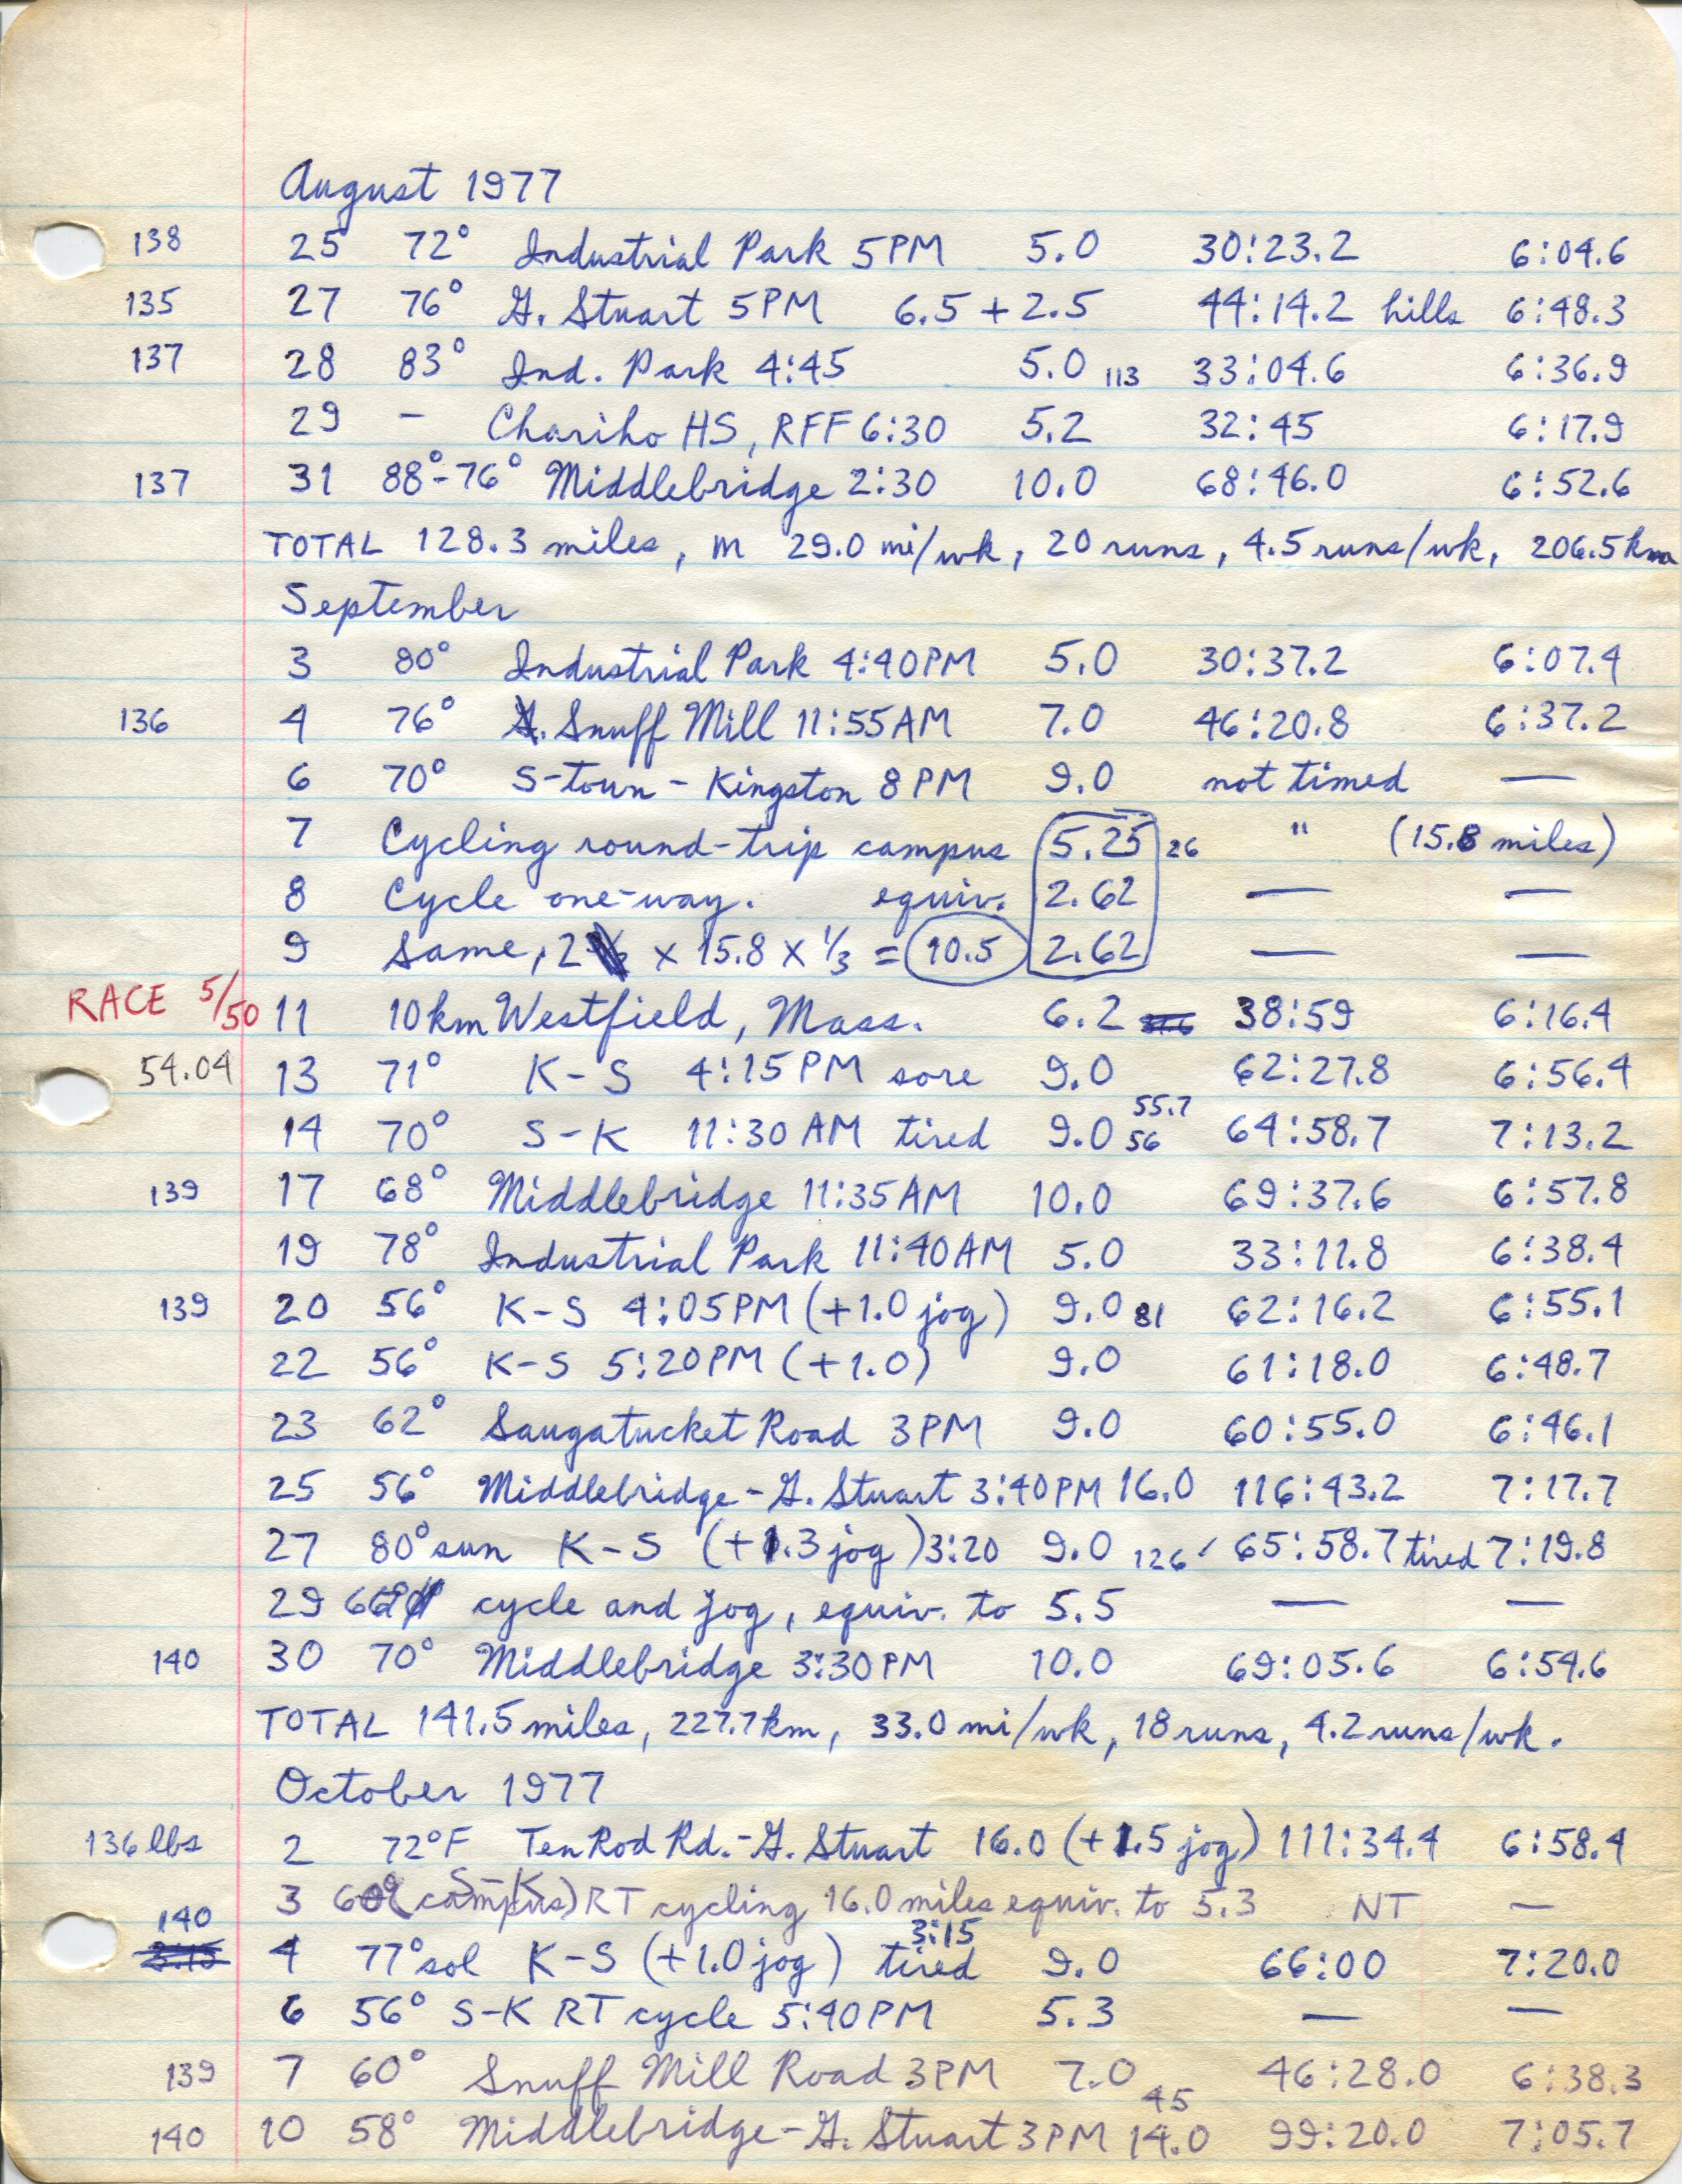 August 1977
138 25 72° Industrial Park 5PM 5.0 30:23.2 6:04.6
135 27 76° G. Stuart 5PM 6.5 + 2.5 44:14.2 hills 6:48.3
137 28 83° Ind. Park 4:45 5.0 113 33:04.6 6:36.9
29 – Chariho HS, RFF 6:30 5.2 32:45 6:17.9
137 31 88°-76° Middlebridge 2:30 10.0 68:46.0 6:52.6
TOTAL 128.3 miles, m 29.0 mi/wk, 20 runs, 4.5 runs/wk, 206.5 km
September
3 80° Industrial Park 4:40PM 5.0 30:37.2 6:07.4
136 4 76° Snuff Mill 11:55AM 7.0 46:20.8 6:37.2
6 70° S-town - Kingston 8PM 9.0 not timed —
7 Cycling round-trip campus 5.25 26 " (15.8 miles)
8 Cycle one-way. equiv. 2.62 — —
9 Same, 2 x 15.8 x 1/3 = 10.5 2.62 — —
RACE 5/50 11 10km Westfield, Mass. 6.2 38:59 6:16.4
54.04 13 71° K-S 4:15PM sore 9.0 62:27.8 6:56.4
55.7
14 70° S-K 11:30AM tired 9.0 56 64:58.7 7:13.2
139 17 68° Middlebridge 11:35AM 10.0 69:37.6 6:57.8
19 78° Industrial Park 11:40AM 5.0 33:11.8 6:38.4
139 20 56° K-S 4:05PM (+1.0 jog) 9.0 81 62:16.2 6:55.1
22 56° K-S 5:20PM (+1.0) 9.0 61:18.0 6:48.7
23 62° Saugatucket Road 3PM 9.0 60:55.0 6:46.1
25 56° Middlebridge - G. Stuart 3:40PM 16.0 116:43.2 7:17.7
27 80° sun K-S (+1.3 jog) 3:20 9.0 126 65:58.7 tired 7:19.8
29 cycle and jog, equiv. to 5.5 — —
140 30 70° Middlebridge 3:30PM 10.0 69:05.6 6:54.6
TOTAL 141.5 miles, 227.7 km, 33.0 mi/wk, 18 runs, 4.2 runs/wk.
October 1977
136 lbs 2 72°F Ten Rod Rd. - G. Stuart 16.0 (+1.5 jog) 111:34.4 6:58.4
S-K
3 60° (campus) RT cycling 16.0 miles equiv. to 5.3 NT —
140 3:15
4 77° sol K-S (+1.0 jog) tired 9.0 66:00 7:20.0
6 56° S-K RT cycle 5:40PM 5.3 — —
139 7 60° Snuff Mill Road 3PM 7.0 46:28.0 6:38.3
45
140 10 58° Middlebridge - G. Stuart 3PM 14.0 99:20.0 7:05.7